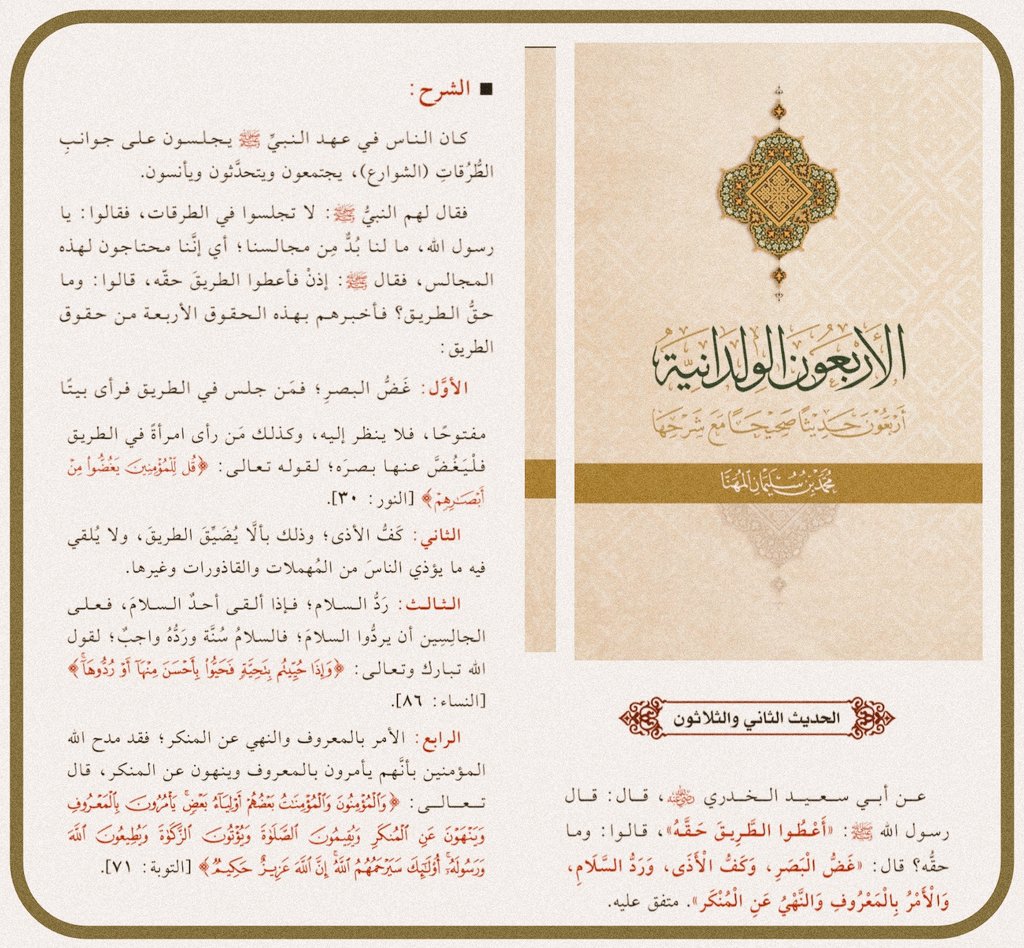 الأربعون الولدانية
أَرْبَعُوْنَ حَدِيْثًا صَحِيْحًا مَعَ شَرْحِهَا
محمد بن سليمان المهنا
الحديث الثاني والثلاثون
عـن أبـي سـعـيـد الـخـدري ﵁، قـال: قـال
رسول الله ﷺ: «أَعْطُوا الطَّرِيقَ حَقَّهُ»، قالوا: وما
حقُّه؟ قال: «غَضُّ الْبَصَرِ، وَكَفُّ الْأَذَى، وَرَدُّ السَّلَامِ،
وَالْأَمْرُ بِالْمَعْرُوفِ وَالنَّهْيُ عَنِ الْمُنْكَرِ». متفق عليه.
الشرح:
كـان الـنـاس فـي عـهـد الـنـبـيِّ ﷺ يـجـلـسـون عـلـى جـوانـبِ
الطُّرُقاتِ (الشوارع)، يجتمعون ويتحدَّثون ويأنسون.
فقال لهم النبيُّ ﷺ: لا تجلسوا في الطرقات، فقالوا: يا
رسول الله، ما لنا بُدٌّ مِن مجالسنا؛ أي إنَّنا محتاجون لهذه
المجالس، فقال ﷺ: إذنْ فأعطوا الطريقَ حقّه، قالوا: وما
حقُّ الطريق؟ فأخبرهم بهذه الحقوق الأربعة من حقوق
الطريق:
الأوَّل: غَضُّ البصرِ؛ فمَن جلس في الطريق فرأى بيتًا
مفتوحًا، فلا ينظر إليه، وكذلك مَن رأى امرأةً في الطريق
فلْيَغُضَّ عنها بصرَه؛ لقوله تعالى: ﴿قُل لِّلْمُؤْمِنِينَ يَغُضُّوا۟ مِنْ
أَبْصَٰرِهِمْ﴾ [النور: ٣٠].
الثاني: كَفُّ الأذى؛ وذلك بألَّا يُضَيِّقَ الطريقَ، ولا يُلقي
فيه ما يؤذي الناسَ من المُهملات والقاذورات وغيرها.
الـثـالـث: رَدُّ السلام؛ فإذا ألقى أحدٌ السلامَ، فعلى
الجالِسِين أن يردُّوا السلامَ؛ فالسلامُ سُنَّة ورَدُّهُ واجبٌ؛ لقول
الله تبارك وتعالى: ﴿وَإِذَا حُيِّيتُم بِتَحِيَّةٍ فَحَيُّوا۟ بِأَحْسَنَ مِنْهَآ أَوْ رُدُّوهَآ﴾
[النساء: ٨٦].
الرابع: الأمر بالمعروف والنهي عن المنكر؛ فقد مدح الله
المؤمنين بأنَّهم يأمرون بالمعروف وينهون عن المنكر، قال
تـعـالـى: ﴿وَٱلْمُؤْمِنُونَ وَٱلْمُؤْمِنَٰتُ بَعْضُهُمْ أَوْلِيَآءُ بَعْضٍ ۚ يَأْمُرُونَ بِٱلْمَعْرُوفِ
وَيَنْهَوْنَ عَنِ ٱلْمُنكَرِ وَيُقِيمُونَ ٱلصَّلَوٰةَ وَيُؤْتُونَ ٱلزَّكَوٰةَ وَيُطِيعُونَ ٱللَّهَ
وَرَسُولَهُۥٓ ۚ أُو۟لَٰٓئِكَ سَيَرْحَمُهُمُ ٱللَّهُ ۗ إِنَّ ٱللَّهَ عَزِيزٌ حَكِيمٌ﴾ [التوبة: ٧١].